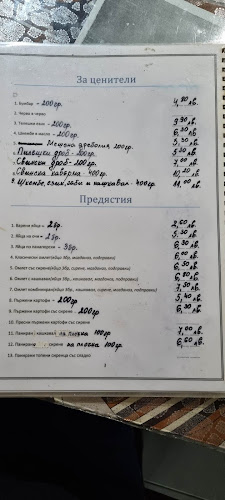 За ценители
1. Бомбар - 200гр. 4,80 лв.
2. Черва в черво
3. Телешки език - 200гр. 9,30 лв.
4. Шкембе в масло - 200гр. 6,30 лв.
5. Мешана дреболия 200гр. 5,30 лв.
6. Пилешки дроб - 200гр. 5,50 лв.
7. Свински дроб - 100гр. 7,00 лв.
8. Свинска кавърма - 400гр. 10,20 лв.
9. Шкембе, език, гъби и кашкавал - 400гр 11,00 лв.
Предястия
1. Варени яйца - 2бр. 2,60 лв.
2. Яйца на очи - 2бр. 5,30 лв.
3. Яйца по панагюрски - 3бр. 6,30 лв.
4. Класически омлет(яйца 3бр, магданоз, подправки) 6,00 лв.
5. Омлет със сирене(яйца 3бр, сирене, магданоз, подправки) 6,50 лв.
6. Омлет с кашкавал(яйца 3бр, кашкавал, магданоз, подправки) 6,80 лв.
7. Омлет комбиниран(яйца 3бр, кашкавал, сирене, магданоз, подправки) 7,50 лв.
8. Пържени картофи - 200гр 5,40 лв.
9. Пържени картофи със сирене 200гр 6,30 лв.
10. Пресни пържени картофи със сирене
11. Паниран кашкавал на плочка 100гр 7,00 лв.
12. Паниран сирене на плочка 100гр. 6,60 лв.
13. Панирани топени сиренца със сладко